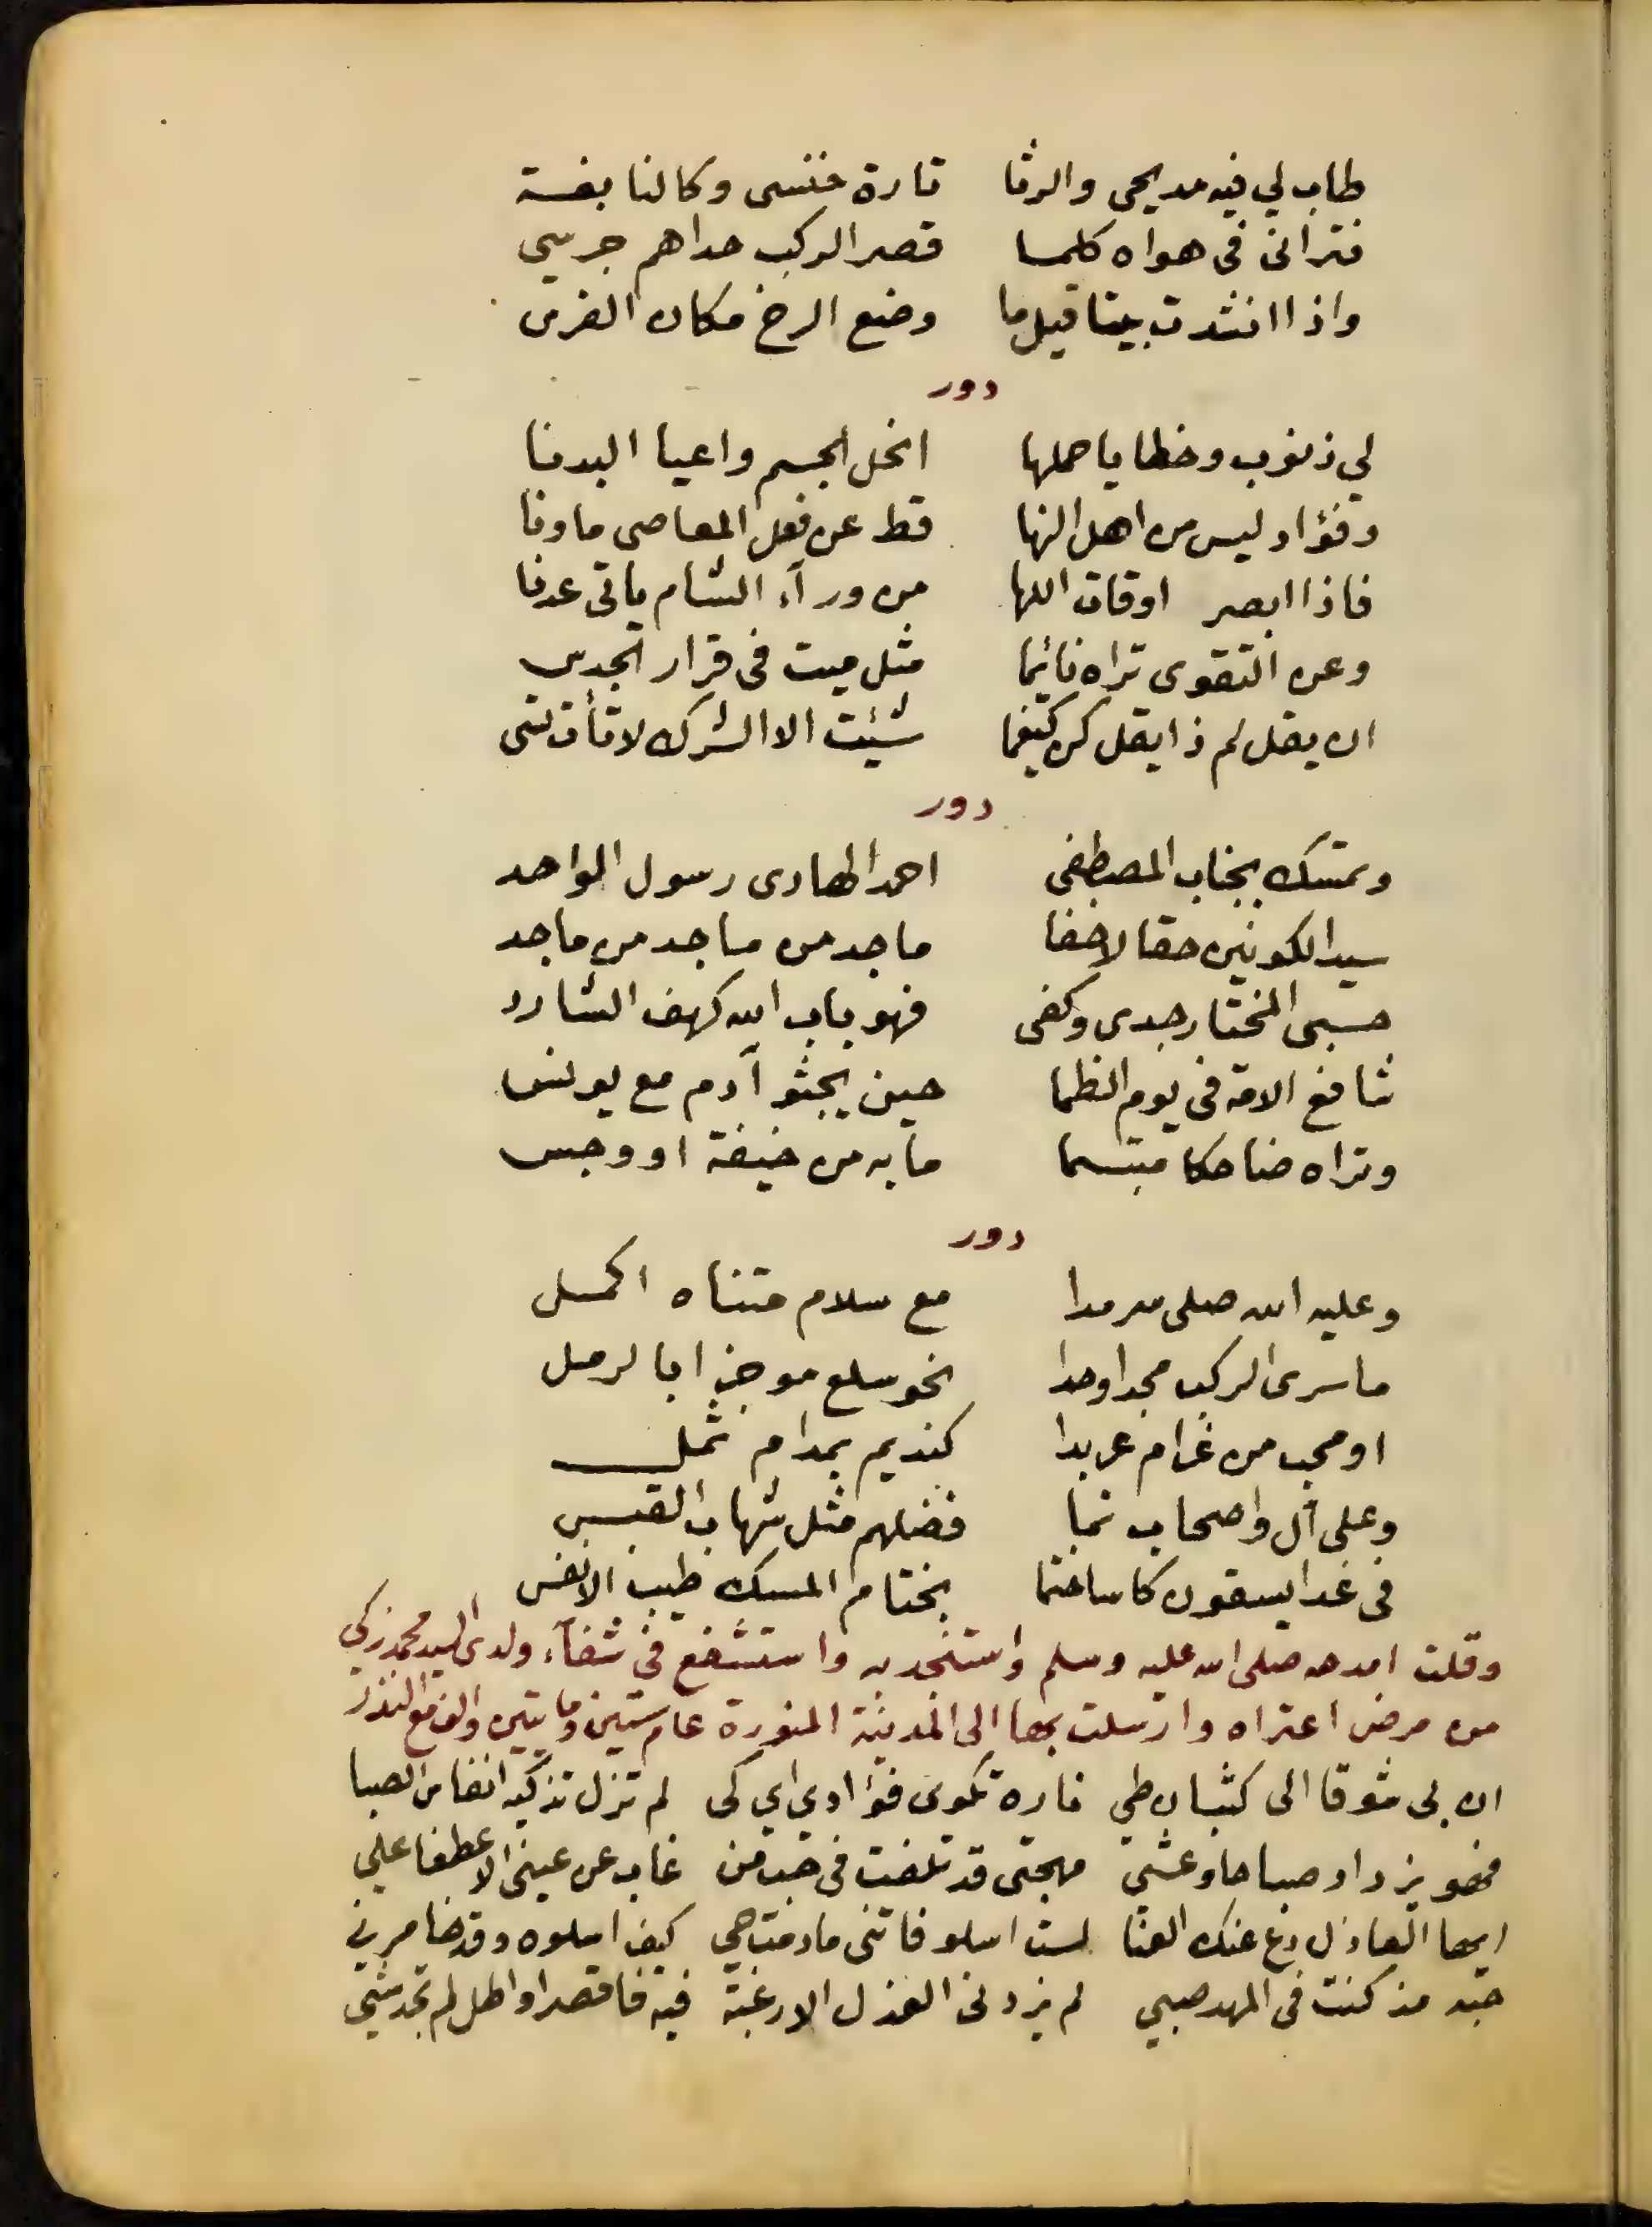 طاب لي فيه مديحي والرثا تارة خنسى وكالنابغة
فتراني في هواه كلما قصر الركب حداهم جرسي
واذا انشدت بيتا قيل ما وضع الرخ مكان الفرس
دور
لي ذنوب وخطايا حملها انحل الجسم واعيا البدنا
وفؤاد ليس من اهل النها قط عن فعل المعاصي ما ونا
فاذا ابصر اوقات اللها من ورآء الشام ياتي عدنا
وعن التقوى تراه نائما مثل ميت في قرار الجدس
ان يقل لم ذا يقل كن كيفما شئت الا الشرك لا تأت نسي
دور
وتمسك بجناب المصطفى احمد الهادى رسول الواحد
سيد الكونين حقا لا خفا ماجد من ماجد من ماجد
حسبي المختار جدى وكفى فهو باب الله كهف الشارد
شافع الامة في يوم الظما حين يجثو آدم مع يونس
وتراه ضاحكا مبتسما ما به من خيفة او وجس
دور
وعليه الله صلى سرمدا مع سلام متناه اكمل
ما سرى الركب مجدا وحدا نحو سلع موجزا بالرمل
او محب من غرام عربدا كنديم بمدام ثمل
وعلى آل واصحاب نما فضلهم مثل شهاب القبس
في غد يسقون كاسا ختما بختام المسك طيب الانفس
وقلت امدحه صلى الله عليه وسلم واستنجد به واستشفع في شفآء ولدى السيد محمد زكي
من مرض اعتراه وارسلت بها الى المدينة المنورة عام ستين ومايتين والف مع النذر
ان بى شوقا الى كثبان طي ناره تكوى فؤادي اي كى لم تزل تذكيه انفاس الصبا
فهو يزداد صباحا وعشي مهجتى قد تلفت في حب من غاب عن عيني الا عطفا علي
ايها العاذل دع عنك العنا لست اسلو فاتنى مادمت حي كيف اسلوه وقد خامرني
حبه مذ كنت في المهد صبي لم يزدنى العذل الا رغبة فيه فاقصر او اطل لم تجد شي